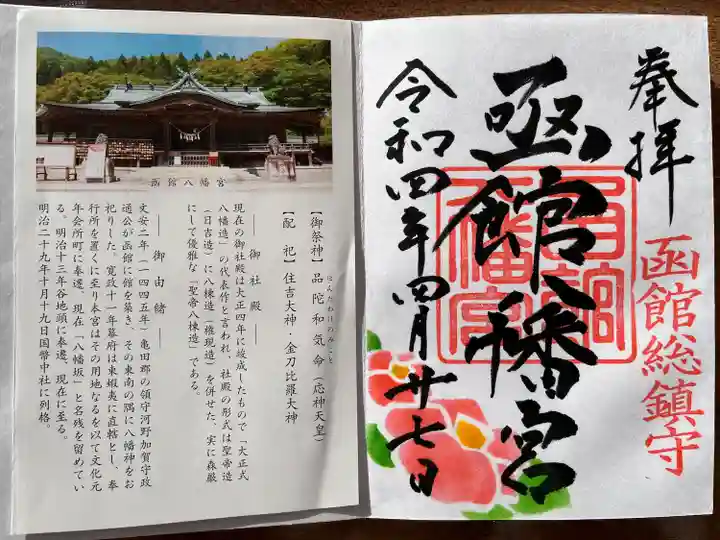 函館八幡宮
【御祭神】品陀和気命（応神天皇）
ほんだわけのみこと
【配　祀】住吉大神・金刀比羅大神
―― 御社殿 ――
現在の御社殿は大正四年に竣成したもので「大正式
八幡造」の代表作と言われ、社殿の形式は聖帝造
（日吉造）に八棟造（権現造）を併せた、実に森厳
にして優雅な「聖帝八棟造」である。
―― 御由緒 ――
文安二年（一四四五年）亀田郡の領守河野加賀守政
通公が函館に館を築き、その東南の隅に八幡神をお
祀りした。寛政十一年幕府は東蝦夷に直轄とし、奉
行所を置くに至り奉宮はその用地なるを以て文化元
年会所町に奉遷、現在「八幡坂」と名残を留めてい
る。明治十三年谷地頭に奉遷、現在に至る。
明治二十九年十月十九日国幣中社に列格。
奉拝
函館総鎮守
函館八幡宮
函館八幡宮
令和四年四月廿七日